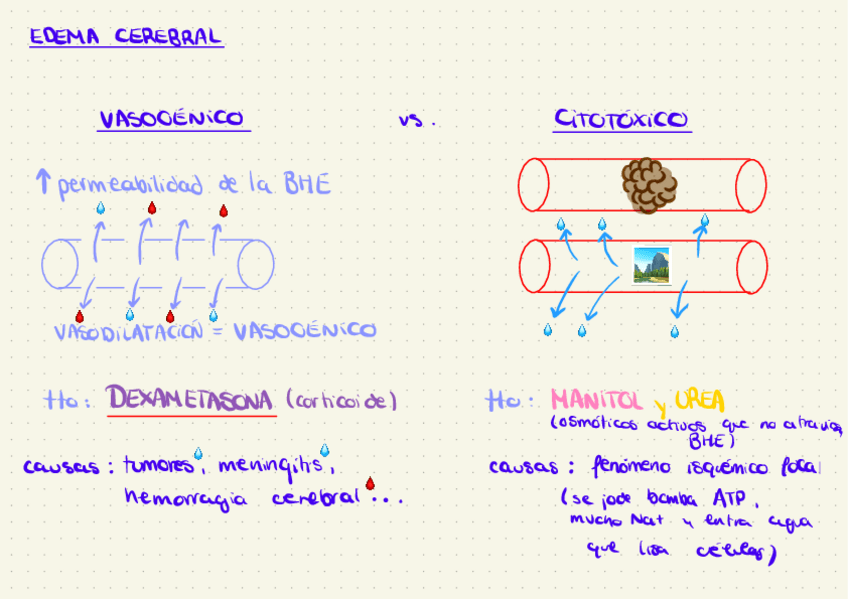 EDEMA CEREBRAL
VASOGÉNICO vs. CITOTÓXICO
↑ permeabilidad de la BHE
VASODILATACIÓN = VASOGÉNICO
tto: DEXAMETASONA (corticoide)
causas: tumores, meningitis,
hemorragia cerebral...
tto: MANITOL y UREA
(osmóticos activos que no atraviesa
BHE)
causas: fenómeno isquémico focal
(se jode bomba ATP,
mucho Na+ y entra agua
que lisa células)